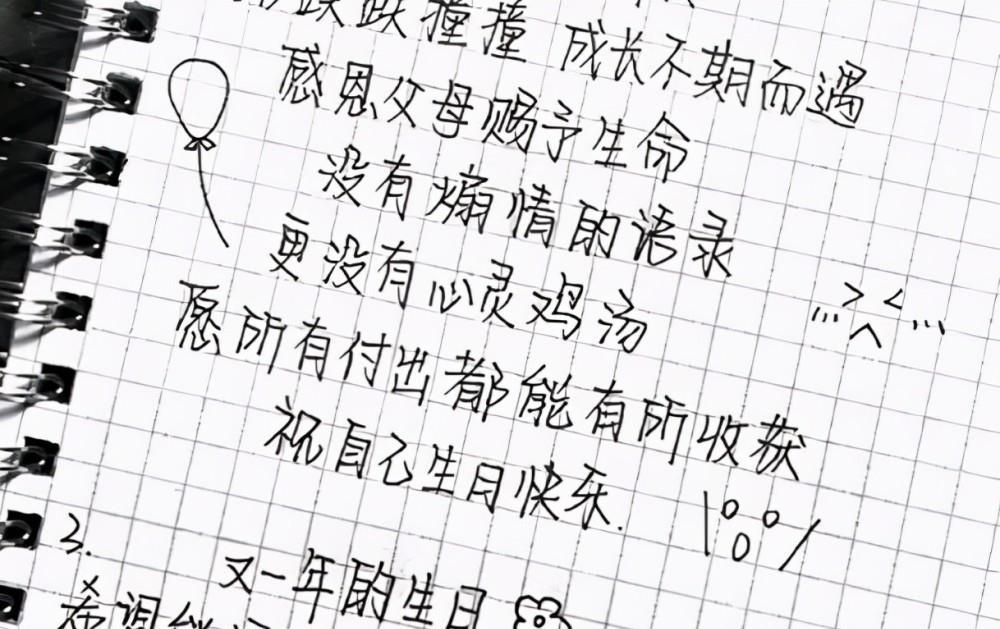 跌跌撞撞 成长不期而遇
感恩父母赐予生命
没有煽情的语录
更没有心灵鸡汤
愿所有付出都能有所收获
祝自己生日快乐.
3.
又一年的生日
希望能